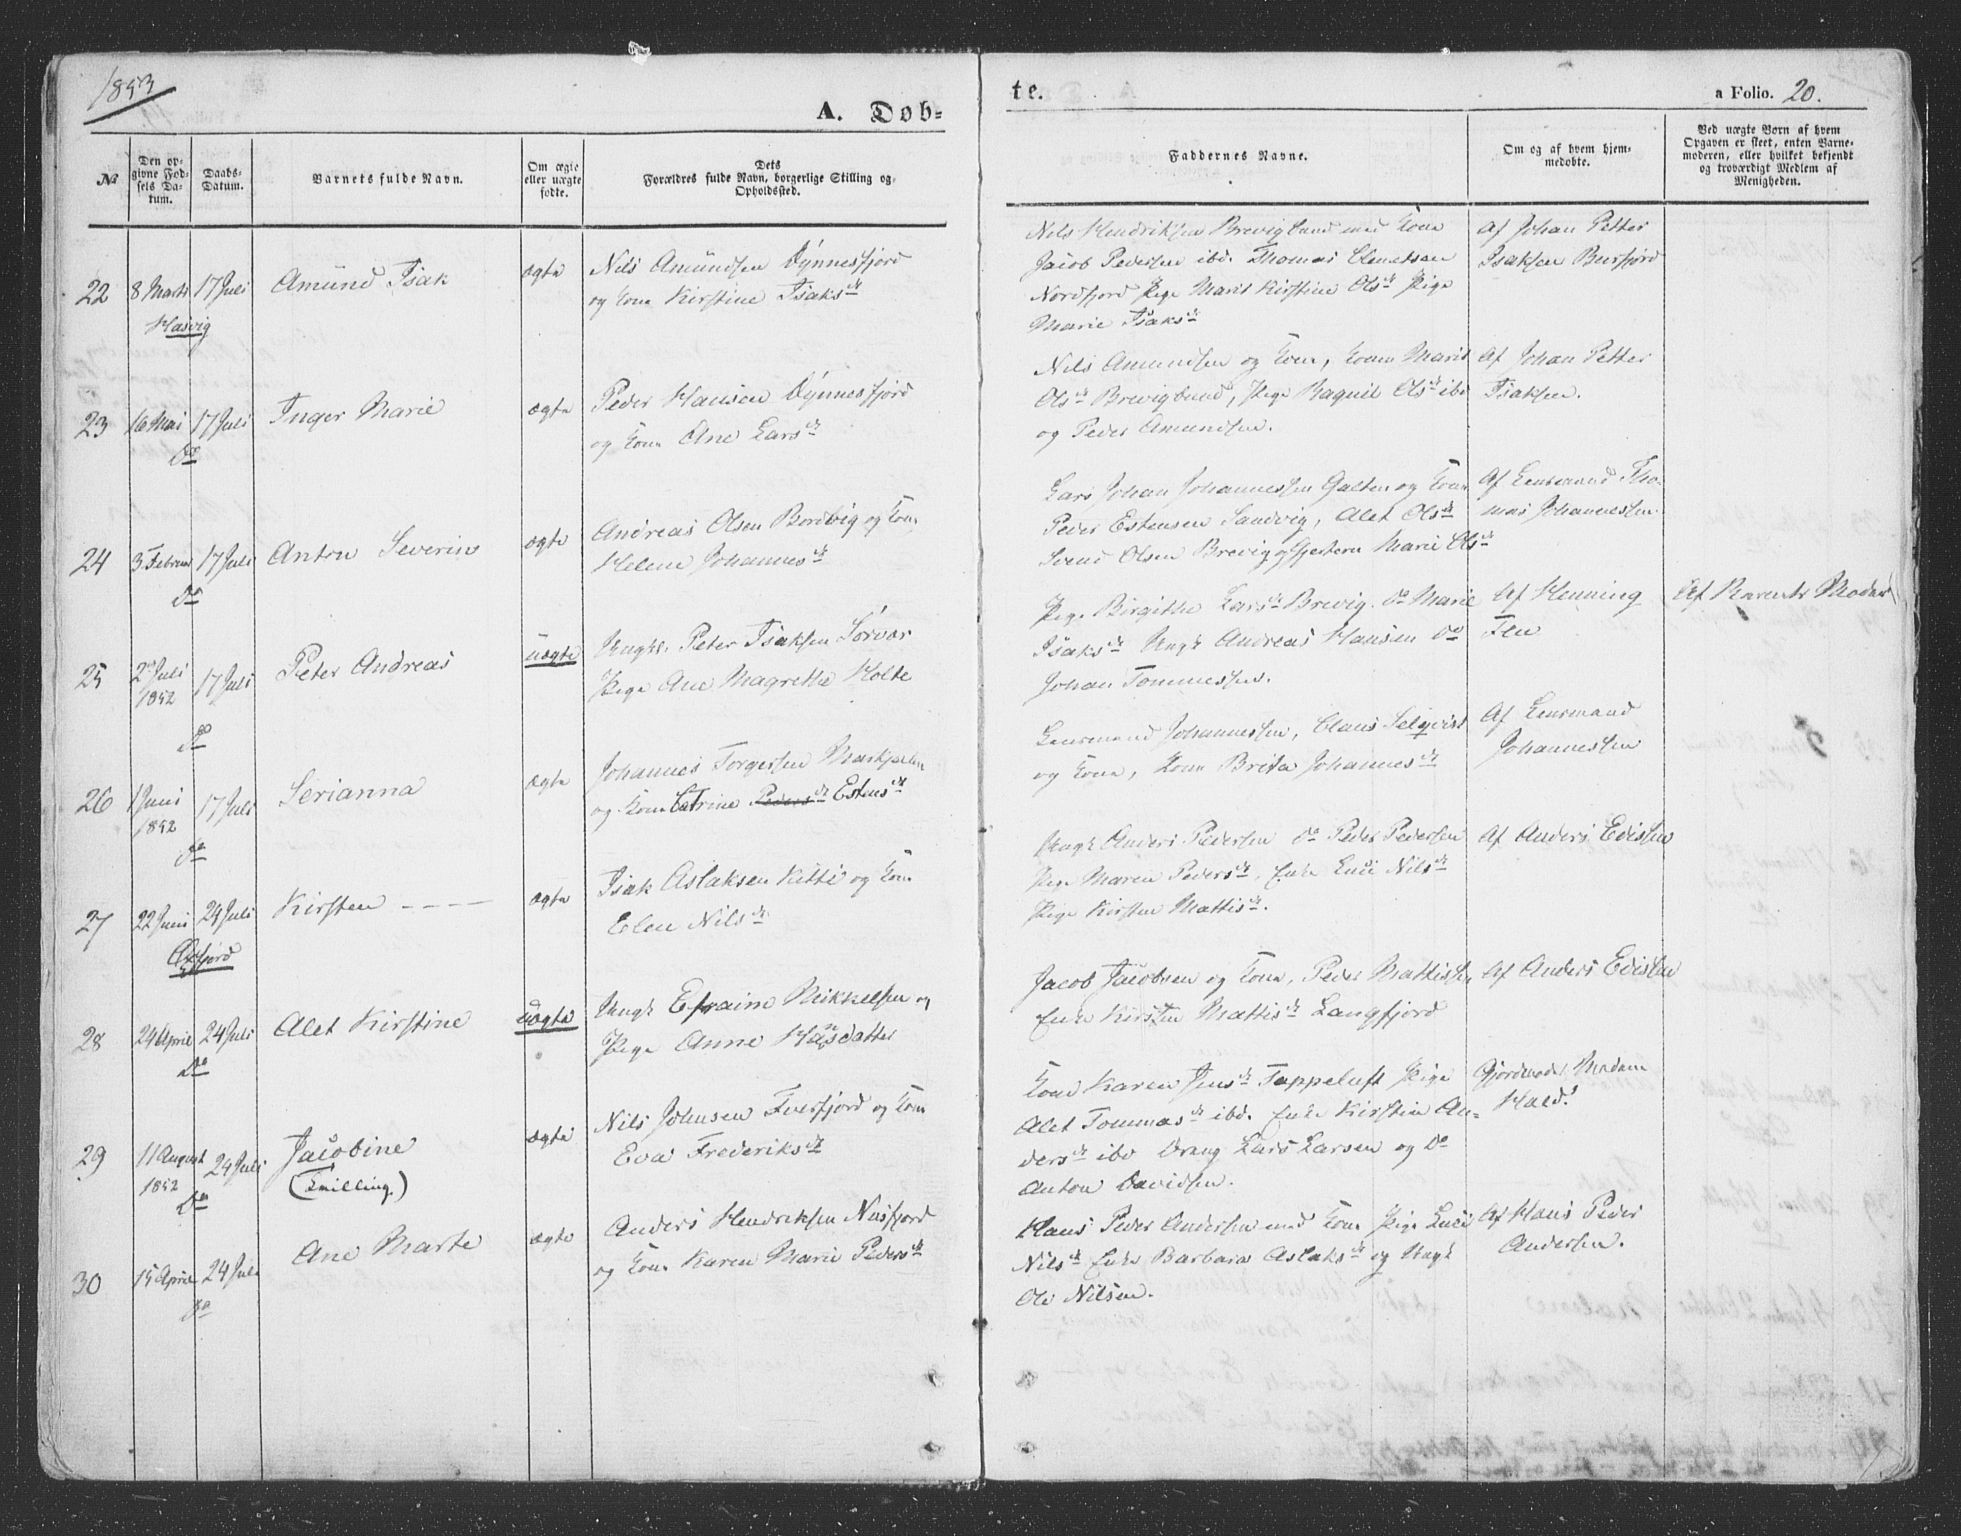 1853
A. Døb-
te.
a Folio. 20.
No
Den op-
givne Fød-
sels Da-
tum.
Daabs-
Datum.
Barnets fulde Navn.
Om ægte
eller uægte
fødte.
Dets
Forældres fulde Navn, borgerlige Stilling og
Opholdssted.
Faddernes Navne.
Om og af hvem hjem-
medøbte.
Ved uægte Børn af hvem
Opgaven er skeet, enten Barne-
moderen, eller hvilket bekjendt
og troværdigt Medlem af
Menigheden.
22 8 Marts 17 Juli Amund Isak ægte
Hasvig
Nils Amundsen Dynnesfjord
og Kone Kirstine Isaksdr
Nils Hendriksen Brevigbund med Kone
Jacob Pedersen ibd. Thomas Clemetsen
Nordfjord Pige Marit Kirstine Olsdr Pige
Marie Isaksdr
Af Johan Petter
Isaksen Bursfjord
23 16 Mai 17 Juli Inger Marie ægte
Do
Peder Hansen Dynnesfjord
og Kone Ane Larsdr
Nils Amundsen og Kone, Kone Marit
Olsdr Brevigbund, Pige Raquil Olsdr ibd
og Peder Amundsen.
Af Johan Petter
Isaksen.
24 3 Februar 17 Juli Anton Severin ægte
Do
Andreas Olsen Bordvig og Kone
Helene Johannesdr
Lars Johan Johannessen Galten og Kone
Peder Estensen Sandvig, Alet Olsdr
Svend Olsen Brevig og Gjesteren Marie Olsdr
Af Lensmand Tho-
mas Johannessen
25 2den Juli 1852 17 Juli Peter Andreas uægte
Do
Ungk. Peter Isaksen Sørvær
Pige Ane Magrethe Holte
Pige Birgithe Larsdr Brevig. Do Marie
Isaksdr Ungk Andreas Hansen Do
Johan Tommessen.
Af Henning
Flu
Af Barnets Moder
26 1 Juni 1852 17 Juli Serianna ægte
Do
Johannes Torgersen Markjeilen
og Kone Catrine Pedersdr Estensdr
Lensmand Johannessen, Claus Selqvist
og Kone, Kone Brita Johannesdr
Af Lensmand
Johannessen
27 22 Juni 24 Juli Kirsten - - - - ægte
Øxfjord
Isak Aslaksen Kitti og Kone
Elen Nilsdr
Ungk Anders Pedersen Do Peder Pedersen
Pige Maren Pedersdr, Enke Luci Nilsdr
Pige Kirsten Mattisdr.
Af Anders Edissen
28 24 April 24 Juli Alet Kirstine uægte
Do
Ungk Efraim Mikkelsen og
Pige Anne Hansdatter
Jacob Jacobsen og Kone, Peder Mattissen
Enke Kirsten Mattisdr Langfjord
Af Anders Edissen
29 11 August 1852 24 Juli Jacobine ægte
(Tvilling.)
Do
Nils Johnsen Tverfjord og Kone
Eva Frederiksdr
Kone Karen Jensdr Tappeluft Pige
Alet Tommasdr ibd. Enke Kirstin An-
dersdr ibd Dreng Lars Larsen og Do
Anton Davidsen.
Gjordmoder Madam
Hald.
30 15 April 24 Juli Ane Marte ægte
Do
Anders Hendriksen Nusfjord
og Kone Karen Marie Pedersdr
Hans Peder Andersen med Kone Pige Luci
Nilsdr Enke Barbara Aslaksdr og Ungk
Ole Nilsen.
Af Hans Peder
Andersen.